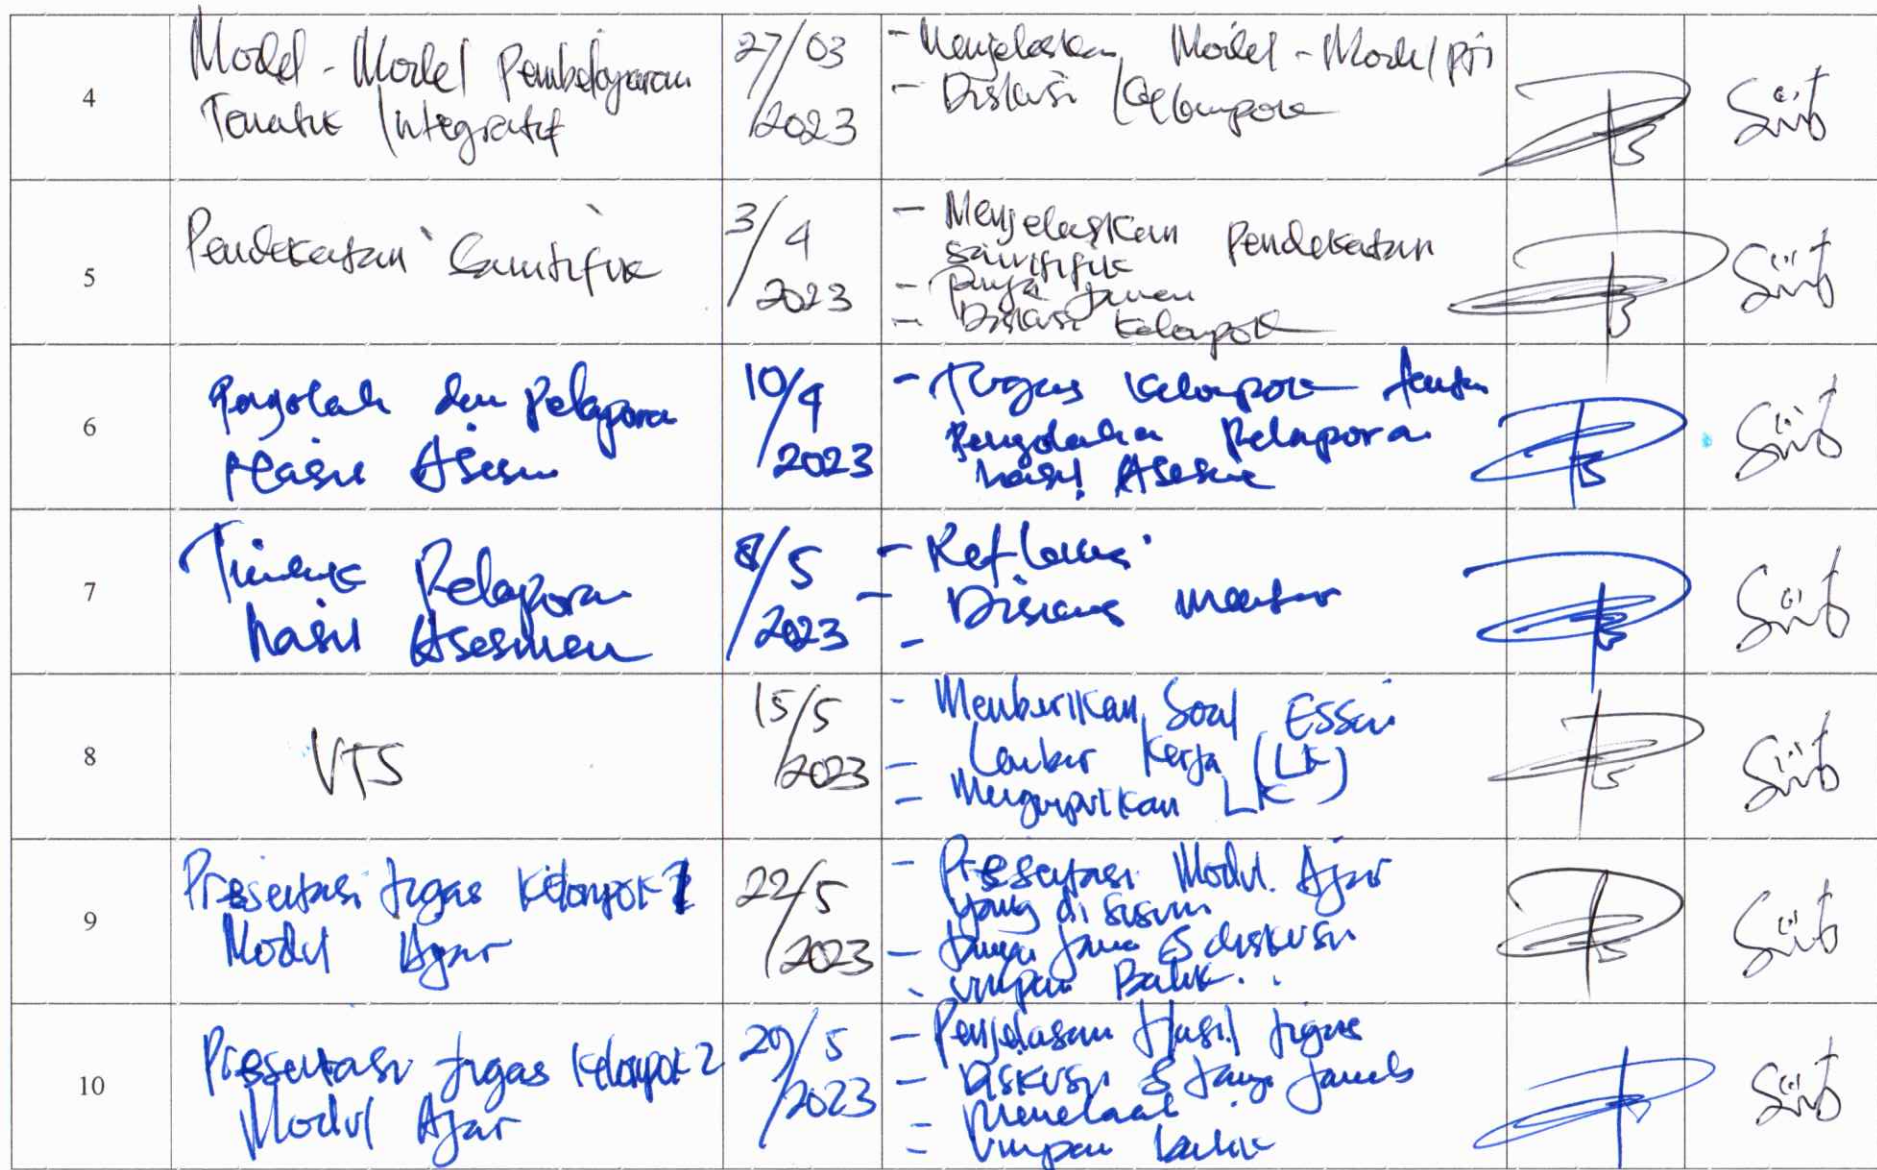 4
Model - Model Pembelajaran
Tematik Integratif
27/03
2023
- Menjelaskan Model - Model pji
- Diskusi Kelompok
5
Pendekatan Saintifik
3/4
2023
- Menjelaskan Pendekatan
saintifik
- Tanya Jawab
- Diskusi Kelompok
6
Pengolah dan Pelaporan
Hasil Asesmen
10/4
2023
- Tugas Kelompok
Pengolahan Pelaporan
hasil Asesmen
7
Teknik Pelaporan
hasil Asesmen
8/5
2023
- Refleksi
- Diskusi
-
8
UTS
15/5
2023
- Memberikan Soal Essai
- Lembar Kerja (LK)
- Mengumpulkan LK
9
Pressentasi tugas Kelompok 1
Modul Ajar
22/5
2023
- Pressentasi Modul Ajar
yang di susun
- Tanya Jawab & diskusi
- umpan Balik
10
Pressentasi tugas Kelompok 2
Modul Ajar
29/5
2023
- Penjelasan Hasil tugas
- Diskusi & tanya jawab
- Menelaah
- Umpan balik